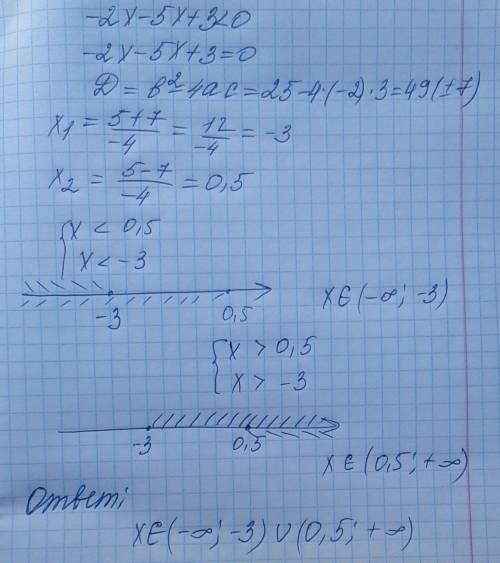 -2x-5x+3<0
-2x-5x+3=0
D = b²-4ac=25-4·(-2)·3=49(±7)
x₁ = (5+7)/(-4) = 12/(-4) = -3
x₂ = (5-7)/(-4) = 0,5
{ x < 0,5
x < -3
-3 0,5 x∈(-∞; -3)
{ x > 0,5
x > -3
-3 0,5
x∈(0,5; +∞)
Ответ:
x∈(-∞; -3)∪(0,5; +∞)